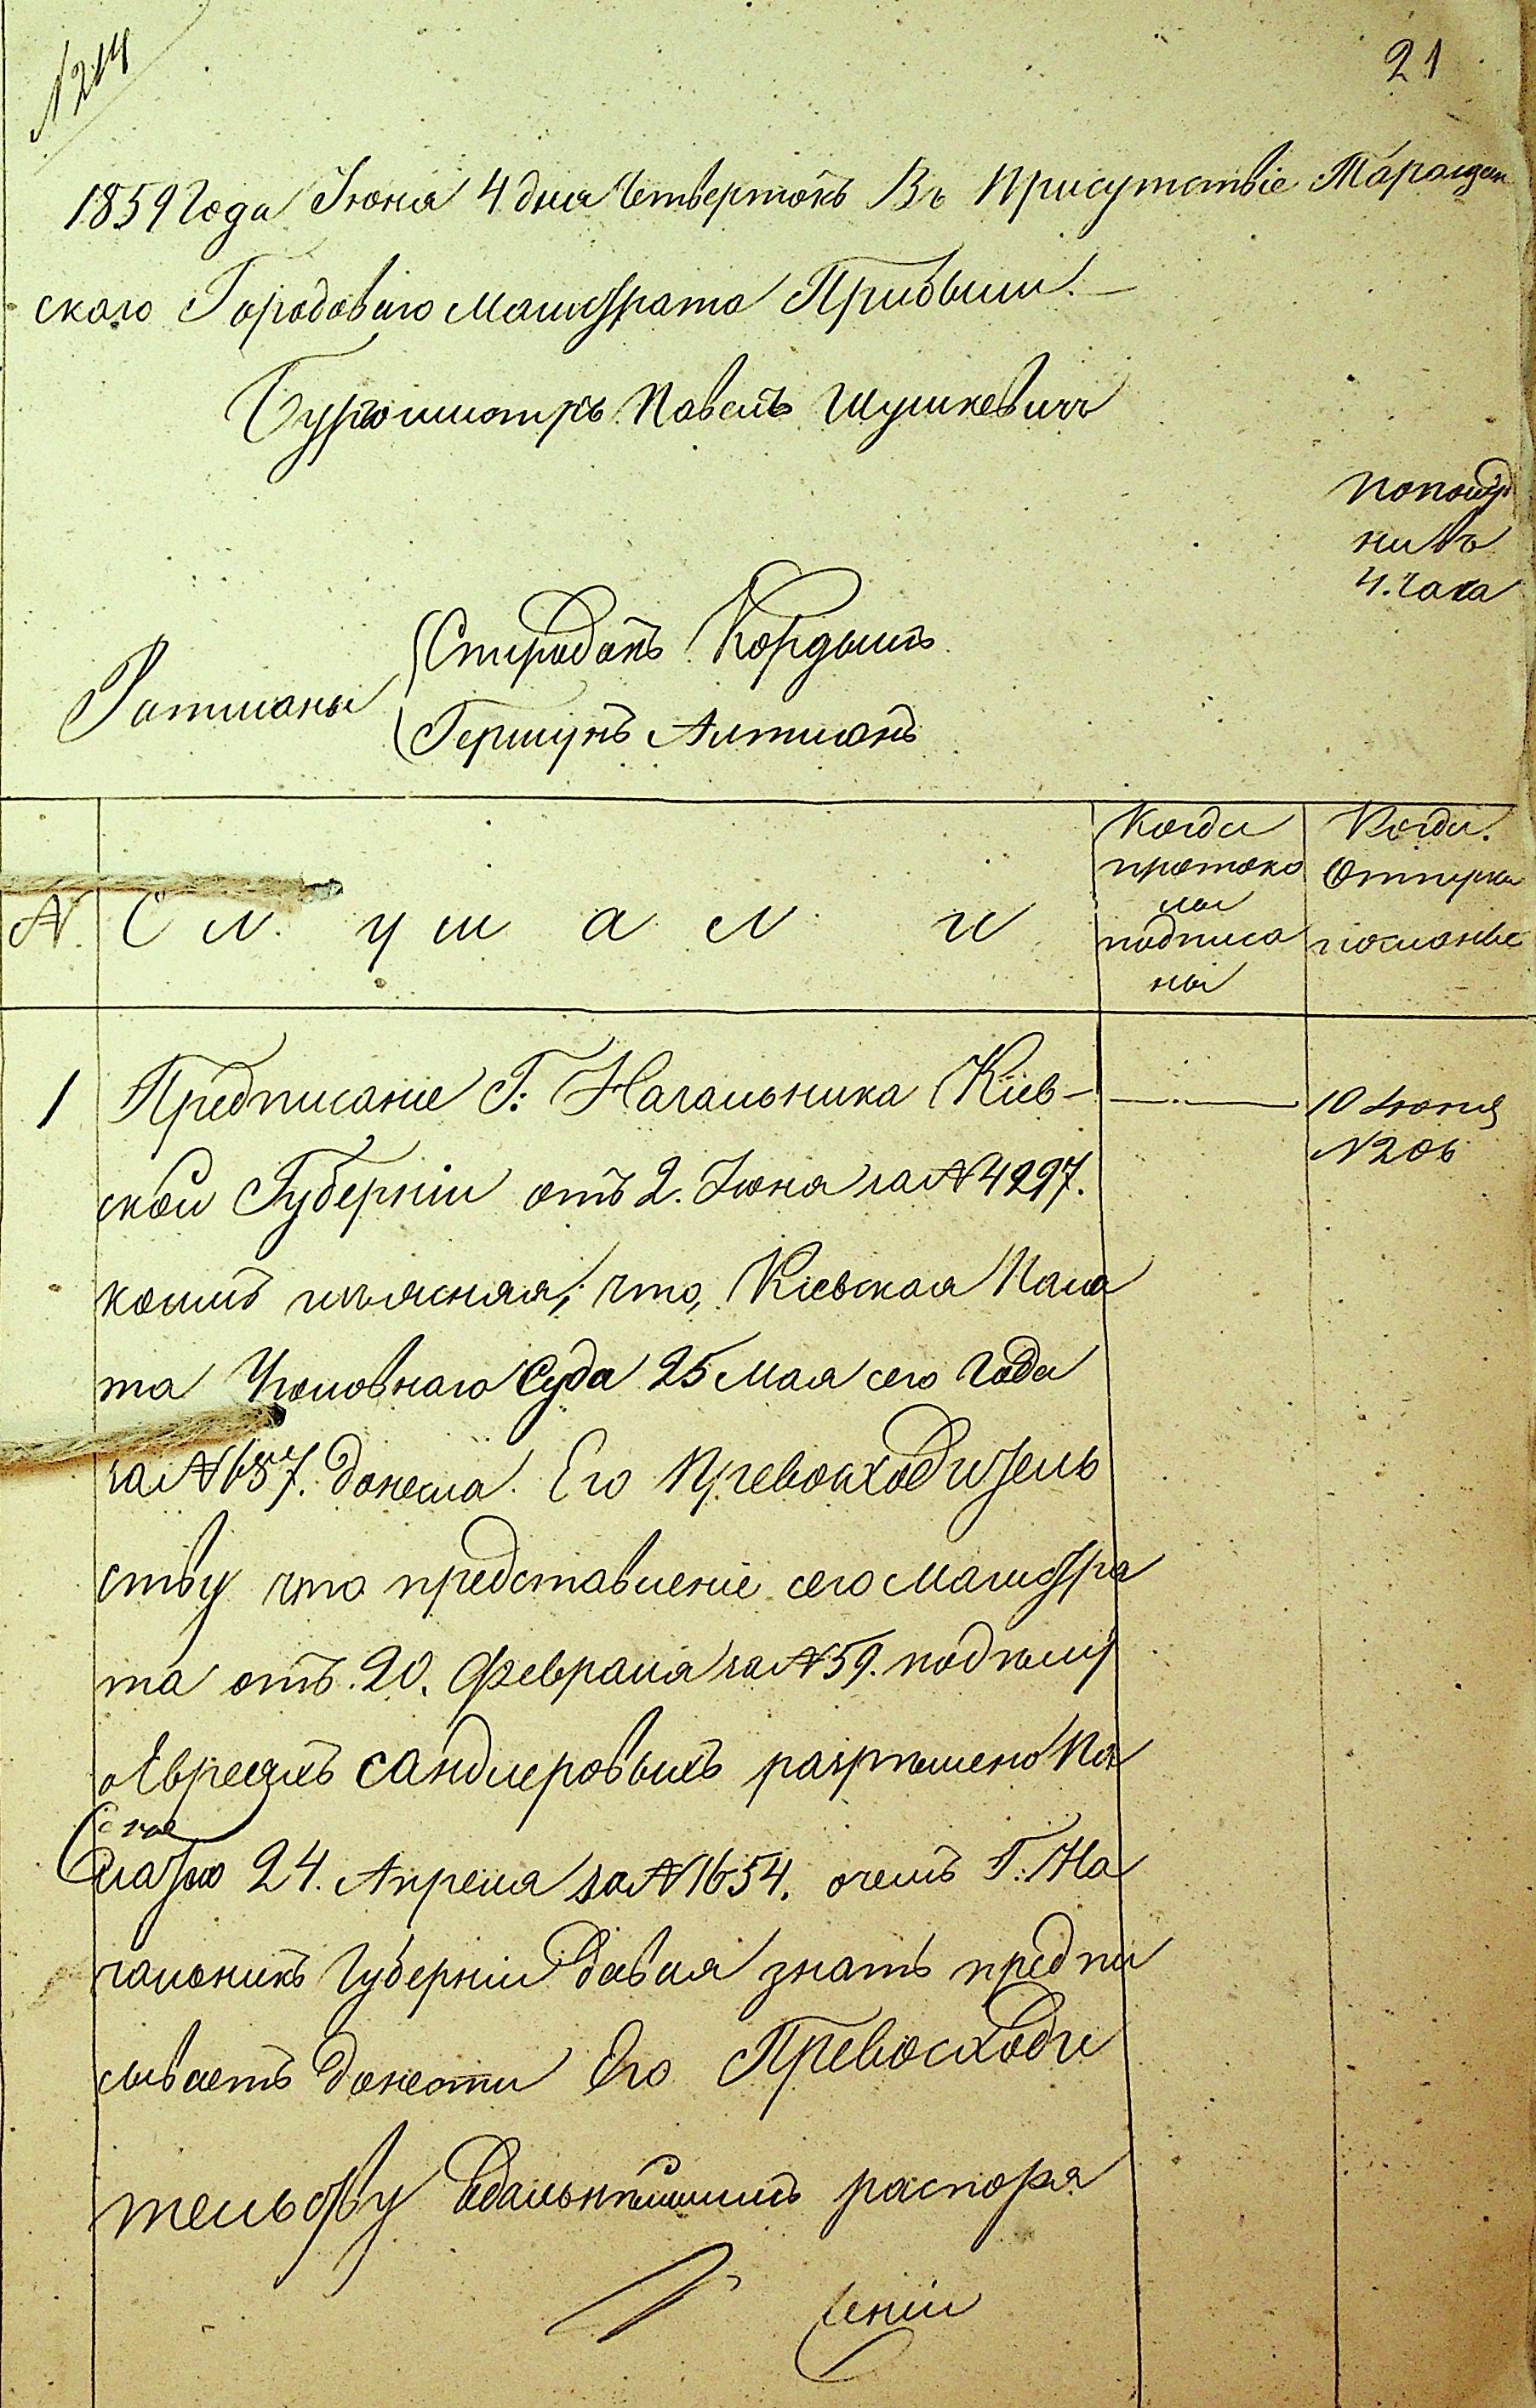 N 214
21
1859 Года Іюня 4 дня Четвертокъ Въ Присутствіе Таращан
ского Городоваго Магистрата Прибыли.
Бургомистръ Павелъ Шушкевичъ
пополуд
ни въ
4. часа
Ратманы
Спиридонъ Кордышъ
Гершунъ Алтманъ
N. Слушали
Когда
протоко
лы
подписа
ны
Когда.
Отпуски
посланые
1 Предписаніе Г: Начальника Кіев-
10 Іюня
N 206
ской Губерніи отъ 2. Іюня за N 4297.
коимъ изъясняя, что, Кіевская Пала
та Уголовнаго Суда 25 Мая сего года
за N 657. донесла Его Превосходитель
ству что представленіе сего Магистра
та отъ 20. Февраля за N 59. по делу
о Евреяхъ Сандлеровыхъ разрешено Па
латою 24. Апреля за N 1654. о чемъ Г: На
чальникъ Губерніи давая знать предпи
сываетъ донести Его Превосходи
тельству о дальнейшимъ распоря
женіи